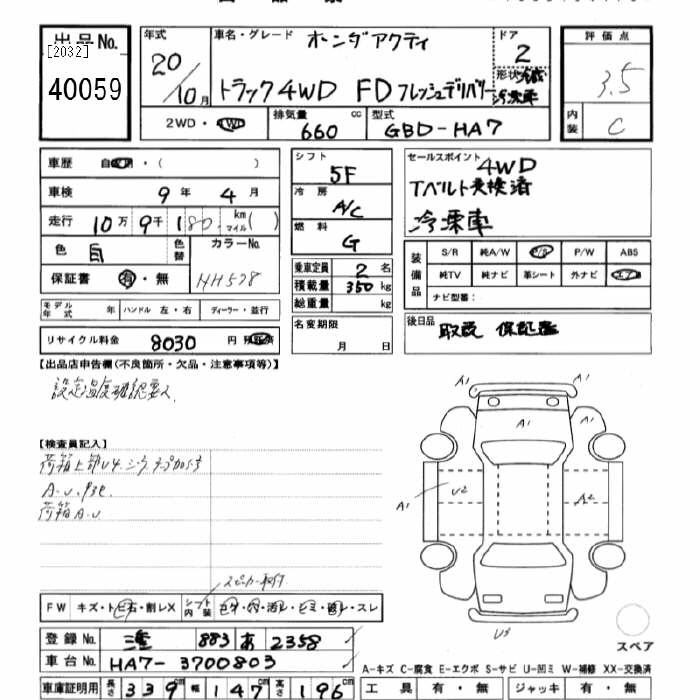 出品No. 年式 車名・グレード ホンダアクティ ドア 2 評価点
[2032]
40059 20/10月 トラック4WD FD フレッシュデリバリー 形状 冷蔵冷凍車 3.5
2WD・4WD 排気量 660 cc 型式 GBD-HA7 内装 C
車歴 自家用・( ) シフト 5F セールスポイント 4WD
車検 9年 4月 冷房 A/C Tベルト交換済
走行 10万 9千 180 km マイル( ) 燃料 G 冷凍車
色 白 色替 カラーNo. NH578
保証書 有・無 乗車定員 2名
積載量 350 kg
総重量 kg
装備品 S/R 純A/W P/S P/W ABS
純TV 純ナビ 革シート 外ナビ エアB
ナビ型番:
モデル年式 年 ハンドル 左・右 ディーラー・並行
名変期限 月 日
後日品 取説 保証書
リサイクル料金 8030 円 預託済
【出品店申告欄(不良箇所・欠品・注意事項等)】
設定温度確認要ス.
【検査員記入】
荷箱上部U4.シーラーテープ加修
A.U.
荷箱A.U
A1 A1
A1
A1 U2 A2
U3
スピーカー
FW キズ・トビ石・割レX シフト 内装 コゲ・穴・汚レ・シミ・破レ・スレ
スペア
登録No. 三重 883 あ 2358
車台No. HA7-3700803
A-キズ C-腐食 E-エクボ S-サビ U-凹ミ W-補修 XX-交換済
車庫証明用 長さ 339cm 幅 147cm 高さ 196cm 工具 有・無 ジャッキ 有・無